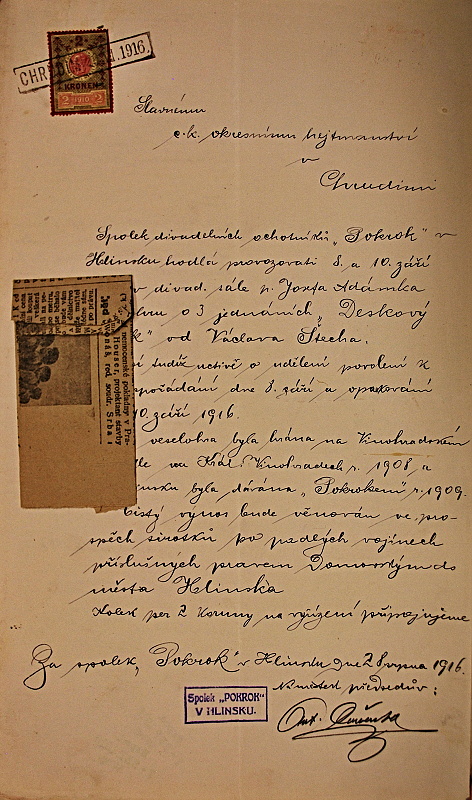 2
KRONEN
2 1910 2
CHR N.1916.
Slavnému
c.k. okresnímu hejtmanství
v
Chrudimi
Spolek divadelních ochotníků „Pokrok" v
Hlinsku hodlá provozovati 8. a 10. září
v divad. sále p. Josefa Adámka
o 3 jednáních „Deskový
" od Václava Štecha.
tudíž uctivě o udělení povolení k
pořádání dne 8. září a opakování
10. září 1916.
veselohra byla hrána na Vinohradském
na Král. Vinohradech r. 1908, a
linsku byla dávána „Pokrokem" r. 1909.
Čistý výnos bude věnován ve pro-
spěch sirotků po padlých vojínech
příslušných pravem Domovským do
města Hlinska
Kolek per 2 Koruny na vyřízení připojujeme
Za spolek „Pokrok" v Hlinsku dne 28 srpna 1916.
předsedův:
Spolek „POKROK"
V HLINSKU.
Ant.
nemocenské pokladny v Pra-
Houser, projektant stavby
red. soudr. Srba: